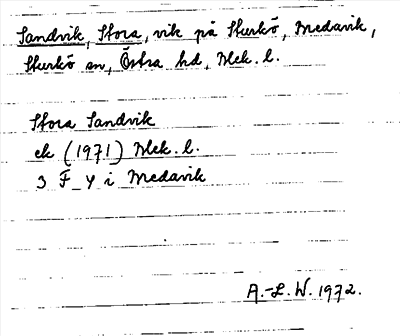 Sandvik, Stora, vik på Sturkö, Medavik,
Sturkö sn, Östra hd, Blek. l.
Stora Sandvik
ek (1971) Blek. l.
3 F_y i Medavik
A.-L. W. 1972.